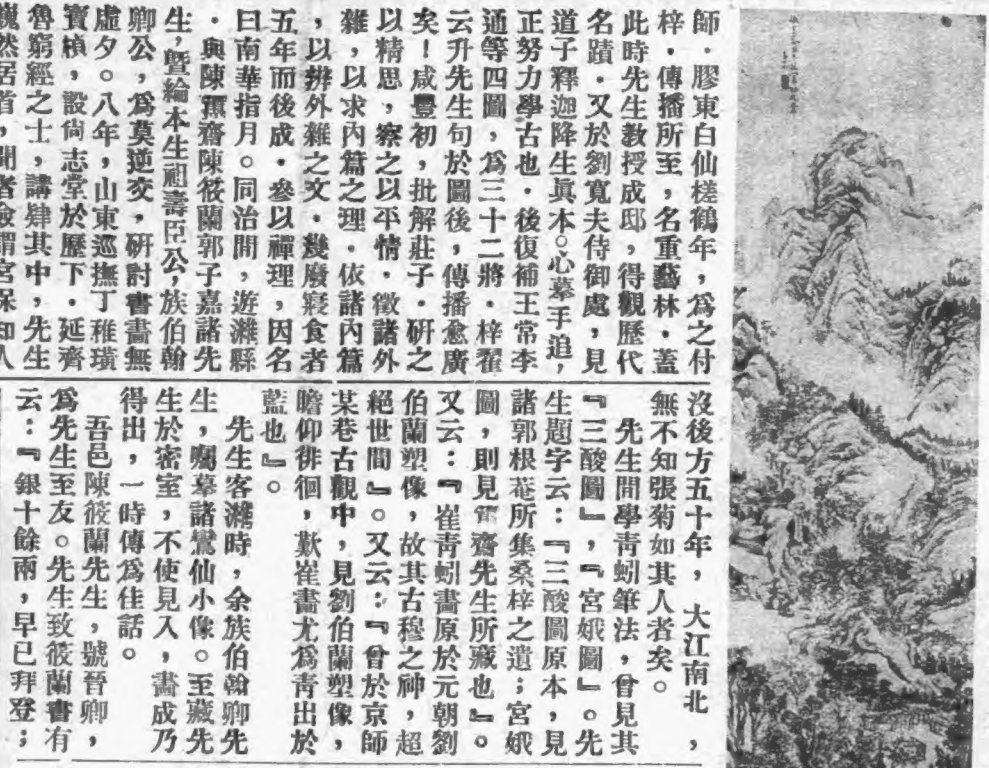 師．膠東白仙槎鶴年，爲之付
梓．傳播所至，名重藝林．蓋
此時先生教授成邸，得觀歷代
名蹟．又於劉寬夫侍御處，見
道子釋迦降生眞本。心摹手追，
正努力學古也．後復補王常李
通等四圖，爲三十二將．梓翟
云升先生句於圖後，傳播愈廣
矣！咸豐初，批解莊子．硏之
以精思，察之以平情．徵諸外
雜，以求內篇之理．依諸內篇
，以辨外雜之文．幾廢寢食者
五年而後成．參以禪理，因名
曰南華指月。同治間，遊濰縣
．與陳簠齋陳筱蘭郭子嘉諸先
生，暨綸本生祖壽臣公，族伯翰
卿公，爲莫逆交，硏討書畫無
虛夕。八年，山東巡撫丁稚璜
寶楨，設尙志堂於歷下．延齊
魯窮經之士，講肄其中，先生
巍然居首，聞者僉謂宮保知人
沒後方五十年，大江南北，
無不知張菊如其人者矣。
先生間學靑蚓筆法，曾見其
『三酸圖』，『宮娥圖』。先
生題字云：『三酸圖原本，見
諸郭根菴所集桑梓之遺；宮娥
圖，則見簠齋先生所藏也』。
又云：『崔靑蚓畫原於元朝劉
伯蘭塑像，故其古穆之神，超
絕世間』。又云：『曾於京師
某巷古觀中，見劉伯蘭塑像，
瞻仰徘徊，歎崔畫尤爲靑出於
藍也』。
先生客濰時，余族伯翰卿先
生，囑摹諸鸞仙小像。至藏先
生於密室，不使見人，畫成乃
得出，一時傳爲佳話。
吾邑陳筱蘭先生，號晉卿，
爲先生至友。先生致筱蘭書有
云：『銀十餘兩，早已拜登；